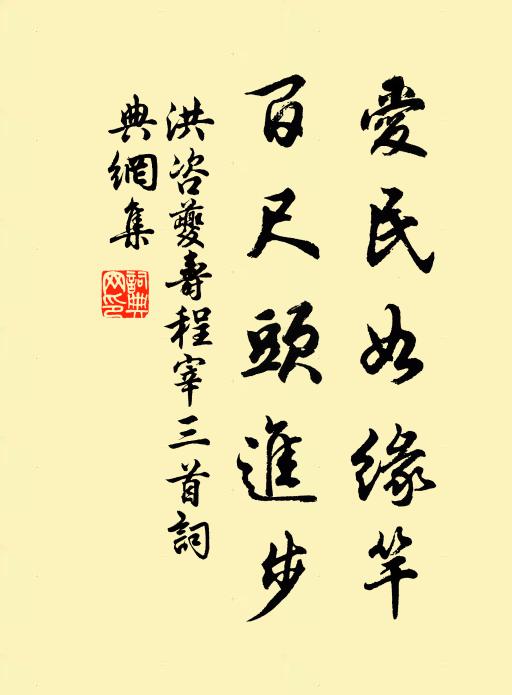 愛民如緣竿
百尺頭進步
洪咨夔壽程宰三首詞
典網集
詞典網印